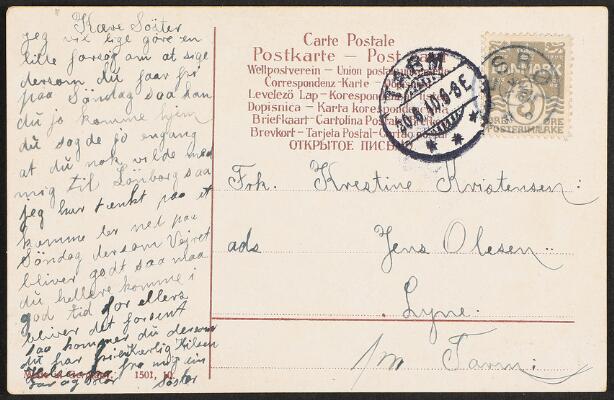 Kære Søster
jeg vil lige gøre en
lille forsøg om at sige
dersom du faar fri
paa Søndag saa kan
du jo komme hjem
du sagde jo engang
at du nok vilde med
mig til Lønborg saa
jeg har tænkt paa at
komme der ned paa
Søndag dersom Vejret
bliver godt saa maa
du hellere komme i
god tid for ellers
bliver det forsent
saa kommer du dersom
du har fri kærlig Hilsen
fra mig din
Søster
1501,
Carte Postale
Postkarte —
Weltpostverein — Union postale
Correspondenz-Karte —
Levelező Lap —
Dopisnica — Karta korespond
Briefkaart — Cartolina Postal
Brevkort — Tarjeta Postal — Cartão postal
ОТКРЫТОЕ ПИСЬМО
TARM
10.6-8E.
DANMARK
ØRE
POSTFRIMÆRKE
Frk. Krestine Kristensen:
ads Jens Olesen::
Lyne:
p/m Tarm: